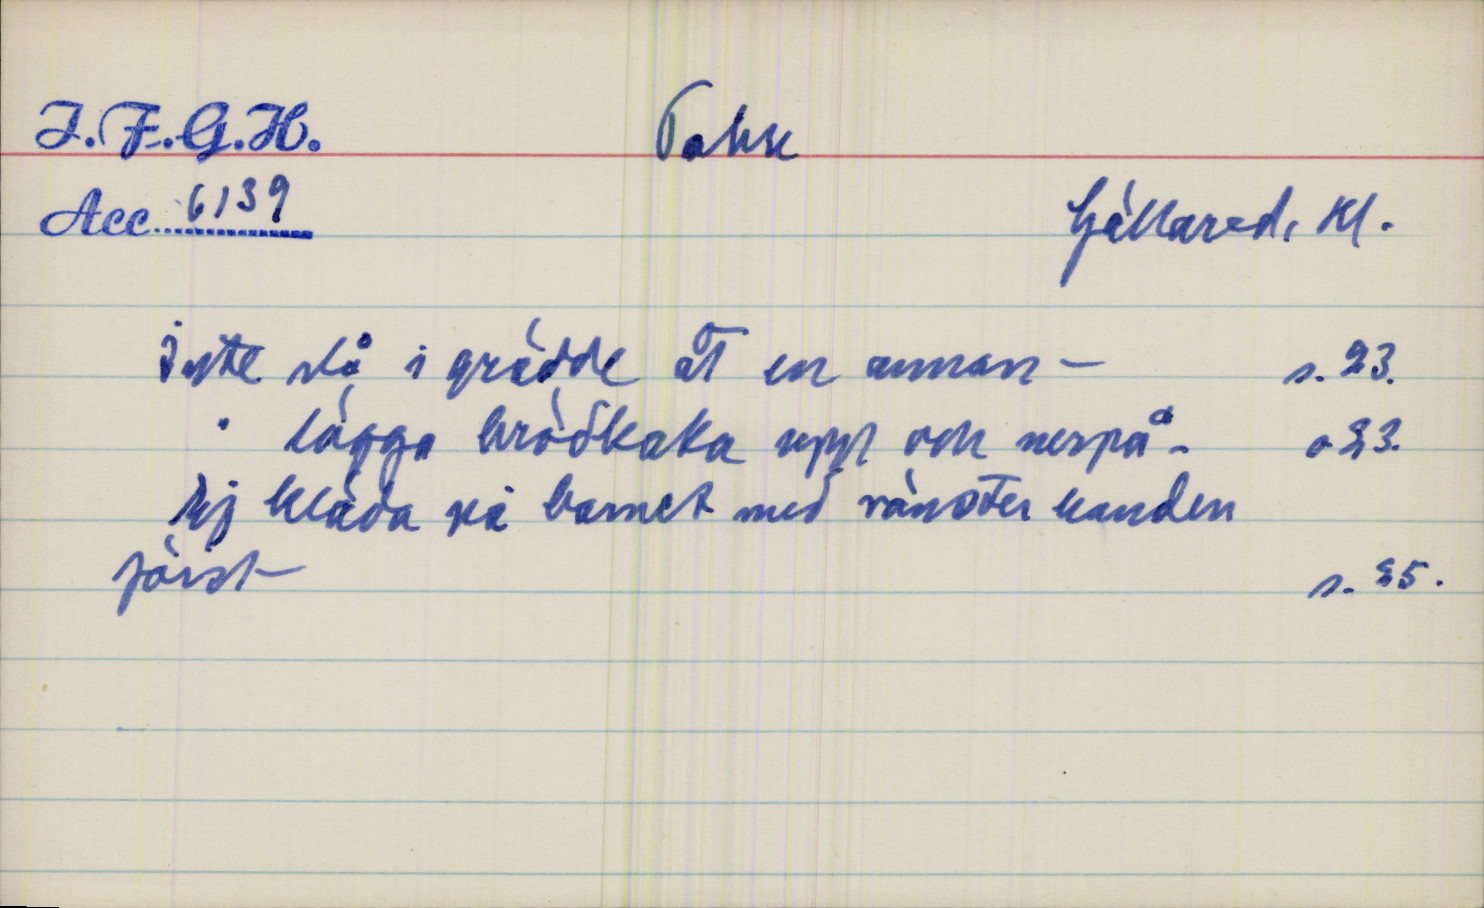 I.F.G.H.
Tabu
Acc. 6139
Gällared, Hl.
Inte slå i grädde åt en annan – s. 23.
" lägga brödkaka upp och nerpå – s 23.
Ej kläda på barnet med vänster handen
först – s. 25.